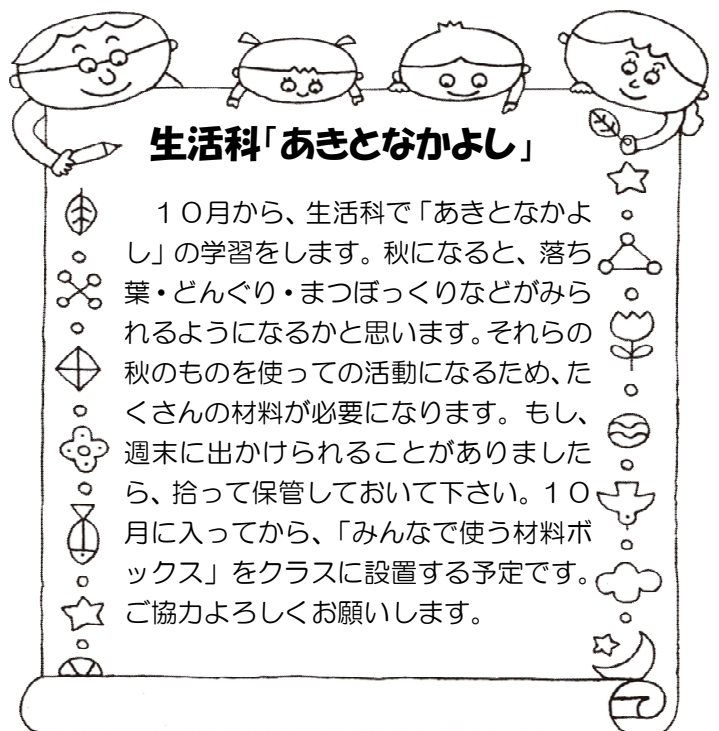 生活科「あきとなかよし」
１０月から、生活科で「あきとなかよ
し」の学習をします。秋になると、落ち
葉・どんぐり・まつぼっくりなどがみら
れるようになるかと思います。それらの
秋のものを使っての活動になるため、た
くさんの材料が必要になります。もし、
週末に出かけられることがありました
ら、拾って保管しておいて下さい。１０
月に入ってから、「みんなで使う材料ボ
ックス」をクラスに設置する予定です。
ご協力よろしくお願いします。